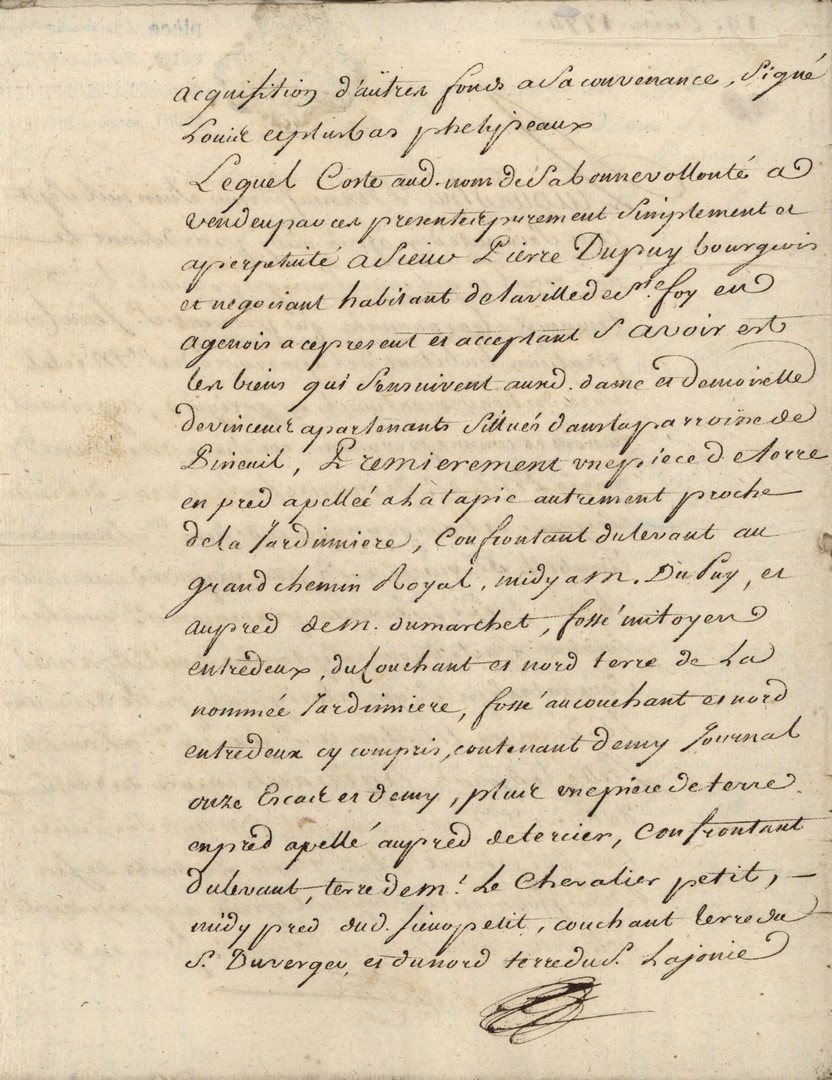 acquisition d'autres fonds a sa convenance, signé
Louis et plus bas phelipeaux
Lequel Coste aud. nom de sa bonne vollonté a
vendeu par ces presentes purement simplement et
a perpetuité a Sieur Pierre Dupuy bourgeois
et negociant habitant de la ville de Ste. foy en
agenois a ce present et acceptant Savoir est
les biens qui sensuivent auxd. dame et demoiselle
de vinceus apartenants Sittués dans la parroisse de
Pineuil, Premierement une piéce de terre
en pred apelleé a ha tapie autrement proche
de la Jardinniere, Confrontant du levant au
grand chemin Royal, midy a M. Du Puy, et
au pred de M. dumarchet, fossé mitoyen
entredeux, du Couchant et nord terre de La
nommée Jardinniere, fossé au couchant et nord
entredeux cy compris, contenant demy Journal
onze Escat et demy, plus une piece de terre
en pred apellé au pred de tercier, Confrontant
du levant, terre de Mr. Le Chevalier petit,
midy pred dud. sieur petit, couchant terre du
S. Duverger, et du nord terre du S. Lajonie